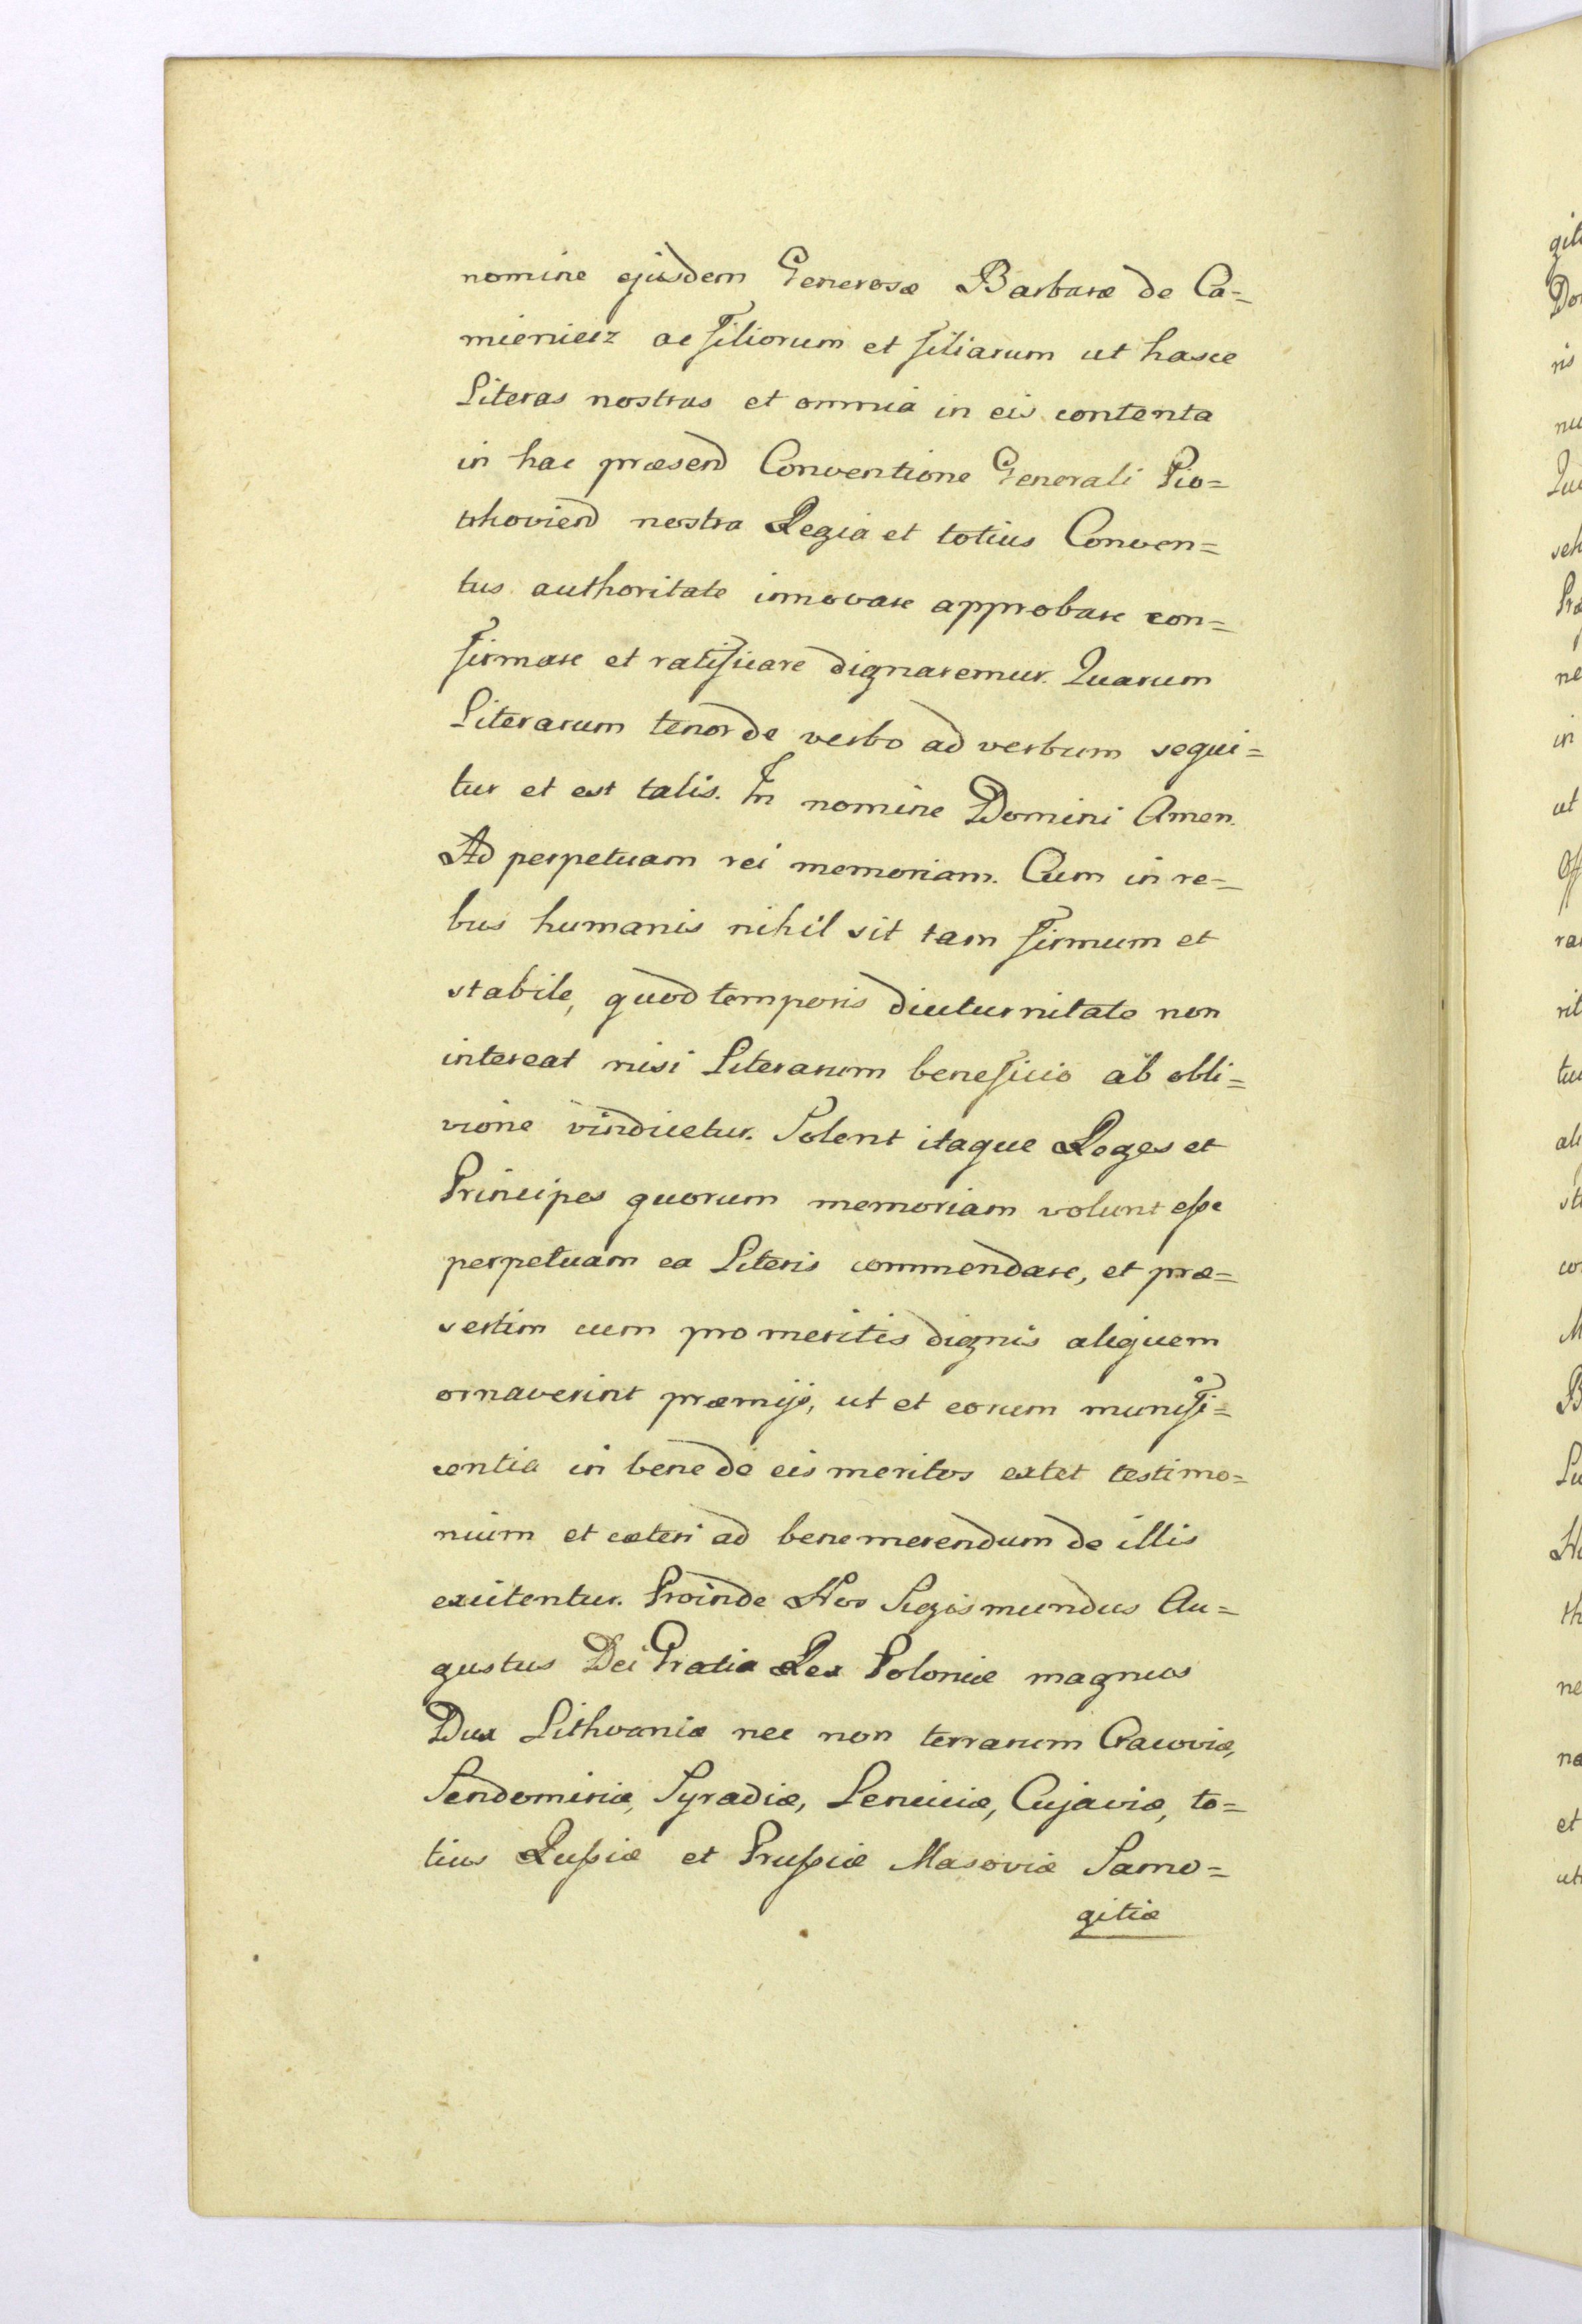 nomine ejusdem Generosæ Barbaræ de Ca=
mieniecz ac filiorum et filiarum ut hasce
Literas nostras et omnia in eis contenta
in hac præsend Conventione Generali Pio=
trkoviend nostra Regia et totius Conven=
tus authoritate innovare approbare con=
firmare et ratificare dignaremur. Quarum
Literarum tenor de verbo ad verbum sequi=
tur et est talis. In nomine Domini Amen.
Ad perpetuam rei memoriam. Cum in re=
bus humanis nihil sit tam firmum et
stabile, quod temporis diuturnitate non
intereat nisi Literarum beneficio ab obli=
vione vindicetur. Solent itaque Reges et
Principes quorum memoriam volunt esse
perpetuam ea Literis commendare, et præ=
sertim cum pro meritis dignis aliquem
ornaverint præmijs, ut et eorum munifi=
centia in bene de eis meritos extet testimo=
nium et cæteri ad benemerendum de illis
excitentur. Proinde Nos Sigismundus Au=
gustus Dei Gratia Rex Poloniæ magnus
Dux Lithvaniæ nec non terrarum Cracoviæ,
Sendomiriæ, Syradiæ, Lenciciæ, Cujaviæ, to=
tius Russiæ et Prussiæ Masoviæ Samo=
gitiæ